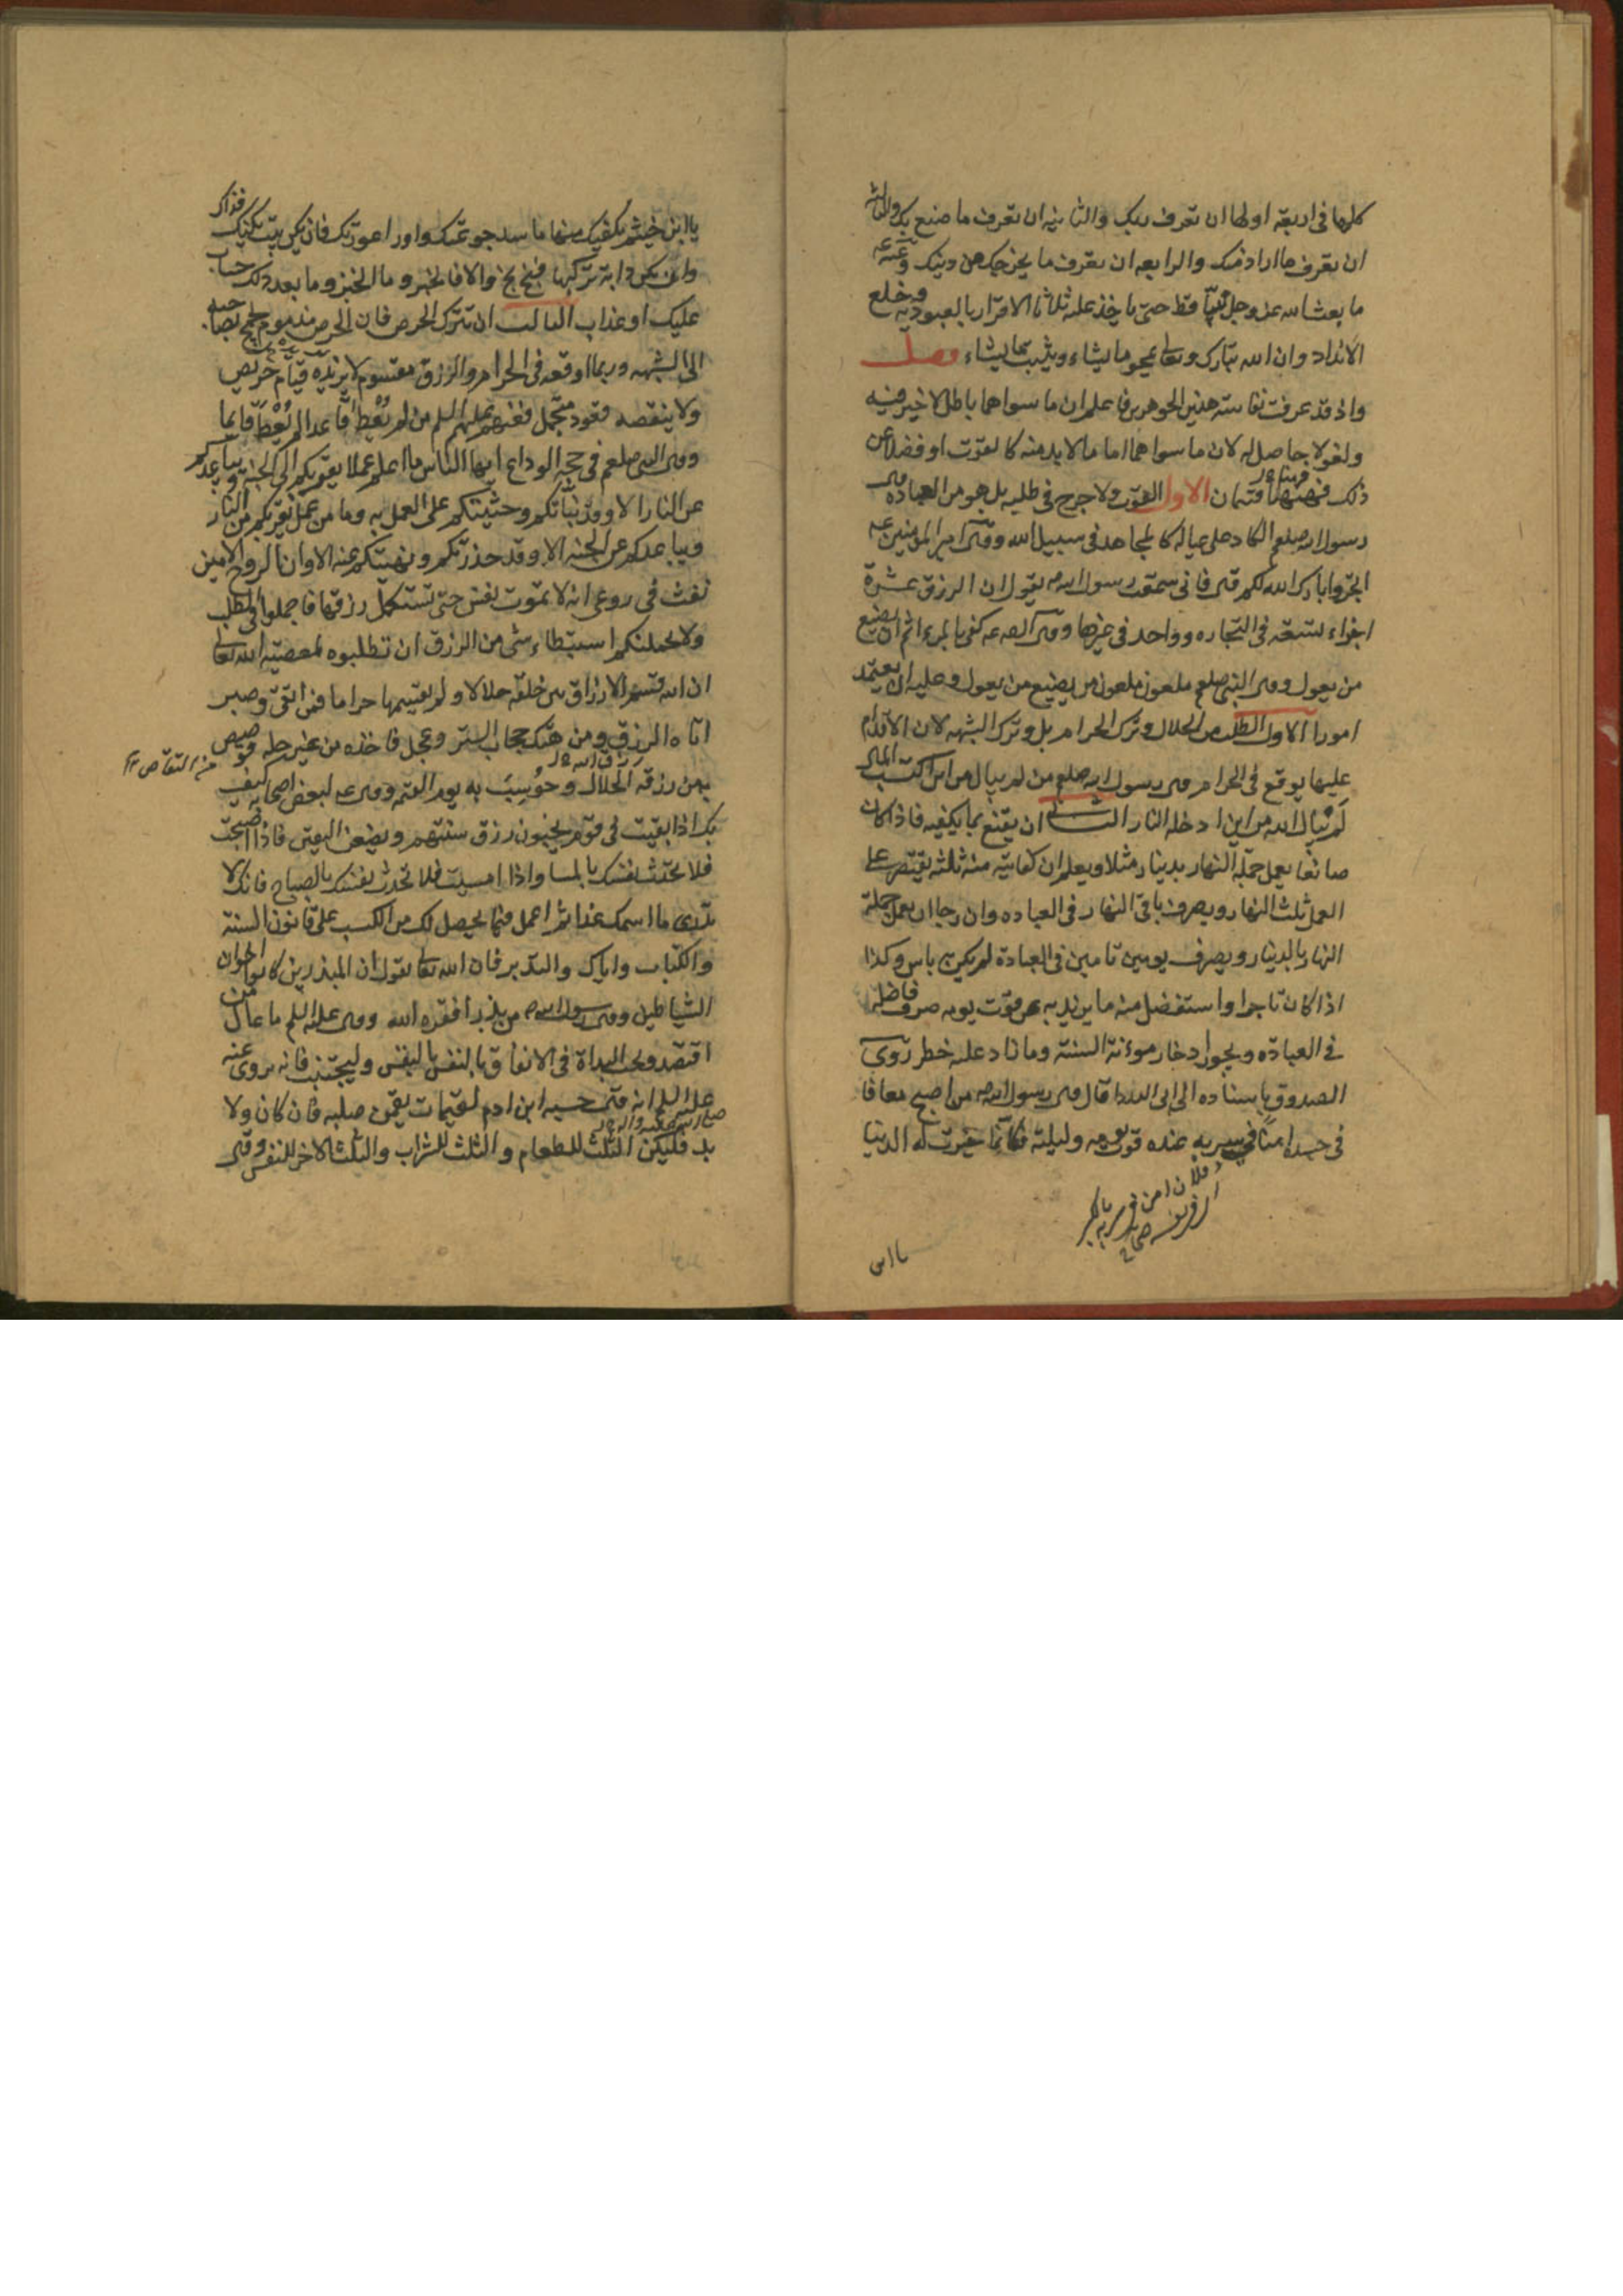 كلها فى اربعة اولها ان تعرف ربك والثانيه ان تعرف ما صنع بك والثالثه
ان تعرف ما اراد منك والرابعه ان تعرف ما يخرجك من دينك وعنه ع
ما بعث الله عز وجل نبيا قط حتى ياخذ عليه ثلاثا الاقرار بالعبوديه وخلع
الانداد وان الله تبارك وتعالى يمحو ما يشاء ويثبت ما يشاء فصل
واذ قد عرفت نفاسة هذين الجوهرين فاعلم ان ما سواهما باطل لا خير فيه
ولغو لا حاصل له لان ما سواهما اما ما لابد منه كالقوت او فضل عن
ذلك فههنا قسمان الاول القوت ولا حرج فى طلبه بل هو من العباده قال
رسول الله صلعم الكاد على عياله كالمجاهد فى سبيل الله وقال امير المؤمنين ع
اتجروا بارك الله لكم فانى سمعت رسول الله ص يقول ان الرزق عشرة
اجزاء تسعة فى التجاره وواحد فى غيرها وقال الص ع كفى بالمرء اثما ان يضيع
من يعول وقال النبى صلعم ملعون ملعون من يضيع من يعول وعليه ان يعتمد
امورا الاول الطلب من الحلال وترك الحرام بل وترك الشبهه لان الاقدام
عليها يوقع فى الحرام قال رسول الله صلعم من لم يبال من اين اكتسب المال
لم يبال الله من اين ادخله النار الثانى ان يقنع بما يكفيه فاذا كان
صانعا يعمل جملة النهار بدينار مثلا ويعلم ان كفايته منه ثلثه يقتصر على
العمل ثلث النهار ويصرف باقى النهار فى العباده وان رجا ان يعمل جملة
النهار بالدينار ويصرف يومين تامين فى العبادة لم يكن به باس وكذا
اذا كان تاجرا واستفضل منه ما يزيد به عن قوت يومه صرف فاضله
فى العباده ويجوز ادخار مؤنة السنة وما زاد عليه خطر روى
الصدوق باسناده الى ابى الدردا قال قال رسول الله ص من اصبح معافا
فى جسده امنا فى سربه عنده قوت يومه وليلته فكانما خيرت له الدنيا
فلان امن فى سربه بالكسر
اى فى نفسه صحاح
يا ابن
يا ابن خيثم يكفيك منها ما سد جوعتك ووارا عورتك فان يكن بيت يكنك فذاك
وان يكن دابة تركبها فبخ بخ والا فالخبز وما الخبز وما بعد ذلك حساب
عليك او عذاب الثالث ان تترك الحرص فان الحرص مذموم يلج بصاحبه
الى الشبهه وربما اوقعه فى الحرام والرزق مقسوم لا يزيده قيام حريص
ولا ينقصه قعود مجمل فعنهم عليهم السلم من لم يعط قاعدا لم يعط قايما
وقال النبى صلعم فى حجة الوداع ايها الناس ما اعلم عملا يقربكم الى الجنة ويباعدكم
عن النار الا وقد نباتكم وحثيتكم على العمل به وما من عمل يقربكم من النار
ويباعدكم عن الجنه الا وقد حذرتكم ونهيتكم عنه الا وان الروح الامين
نفث فى روعى انه لا تموت نفس حتى تستكمل رزقها فاجملوا فى الطلب
ولا يحملنكم استبطاء شى من الرزق ان تطلبوه بمعصية الله تعالى
ان الله قسم الارزاق بين خلقه حلالا ولم يقسمها حراما فمن اتقى وصبر
اتاه الرزق ومن هتك حجاب الستر وعجل فاخذه من غير حله قوصص
من التقاص
به من رزقه الحلال وحوسب به يوم القيمه وقال ع لبعض اصحابه كيف
بك اذا بقيت فى قوم يخبئون رزق سنتهم ويضعف اليقين فاذا اصبحت
فلا تحدث نفسك بالمسا واذا امسيت فلا تحدث نفسك بالصباح فانك لا
تدرى ما اسمك غدا ثم اعمل فيما يحصل لك من الكسب على قانون السنة
والكتاب واياك والتبذير فان الله تعالى يقول ان المبذرين كانوا اخوان
الشياطين وقال رسول الله ص من بذر افقره الله وقال عليه السلم ما عال من
اقتصد ويجب البداة فى الانفاق بالنفس وليجتنب فانه يروى عنه
عليه السلم انه قال حسب ابن ادم لقيمات يقمن صلبه فان كان ولا
صلى الله عليه واله
بد فليكن الثلث للطعام والثلث للشراب والثلث الاخر للنفس وقال